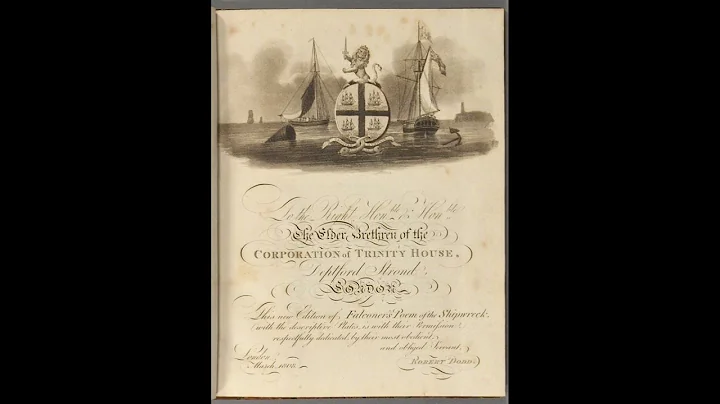 To the Right Honble. & Honble.
The Elder Brethren of the
CORPORATION of TRINITY HOUSE,
Deptford Strond,
LONDON.
This new Edition of Falconer's Poem of the Shipwreck,
with the descriptive Plates, is with their Permission
respectfully dedicated, by their most obedient,
and obliged Servant,
London
March, 1808.
ROBERT DODD.